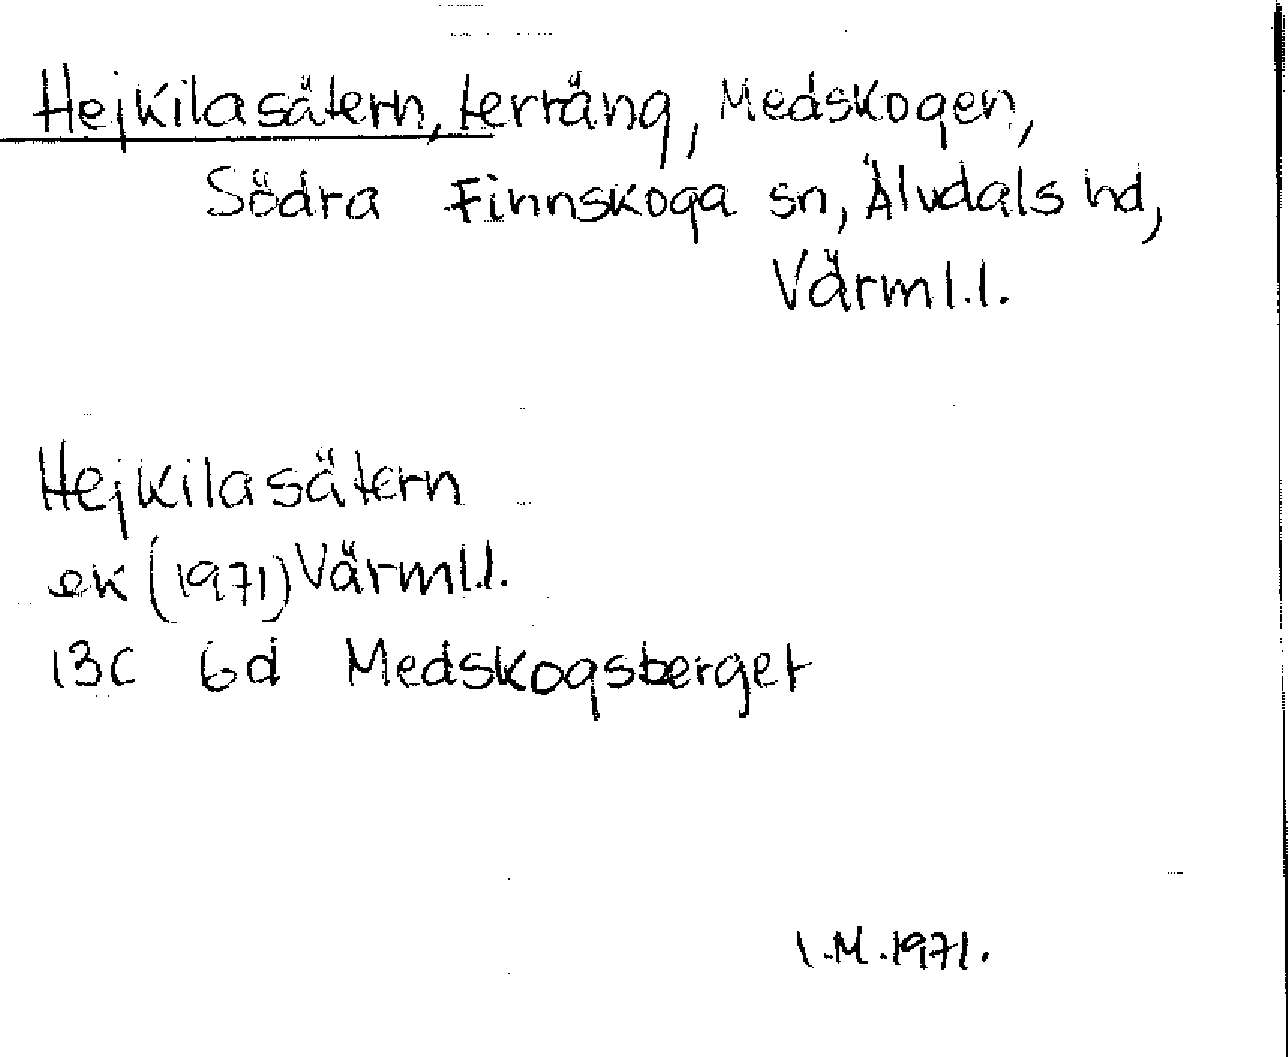 Hejkilasätern, terräng, Medskogen,
Södra Finnskoga sn, Älvdals hd,
Värml.l.
Hejkilasätern
ek (1971) Värml.l.
13C 6d Medskogsberget
I.M.1971.